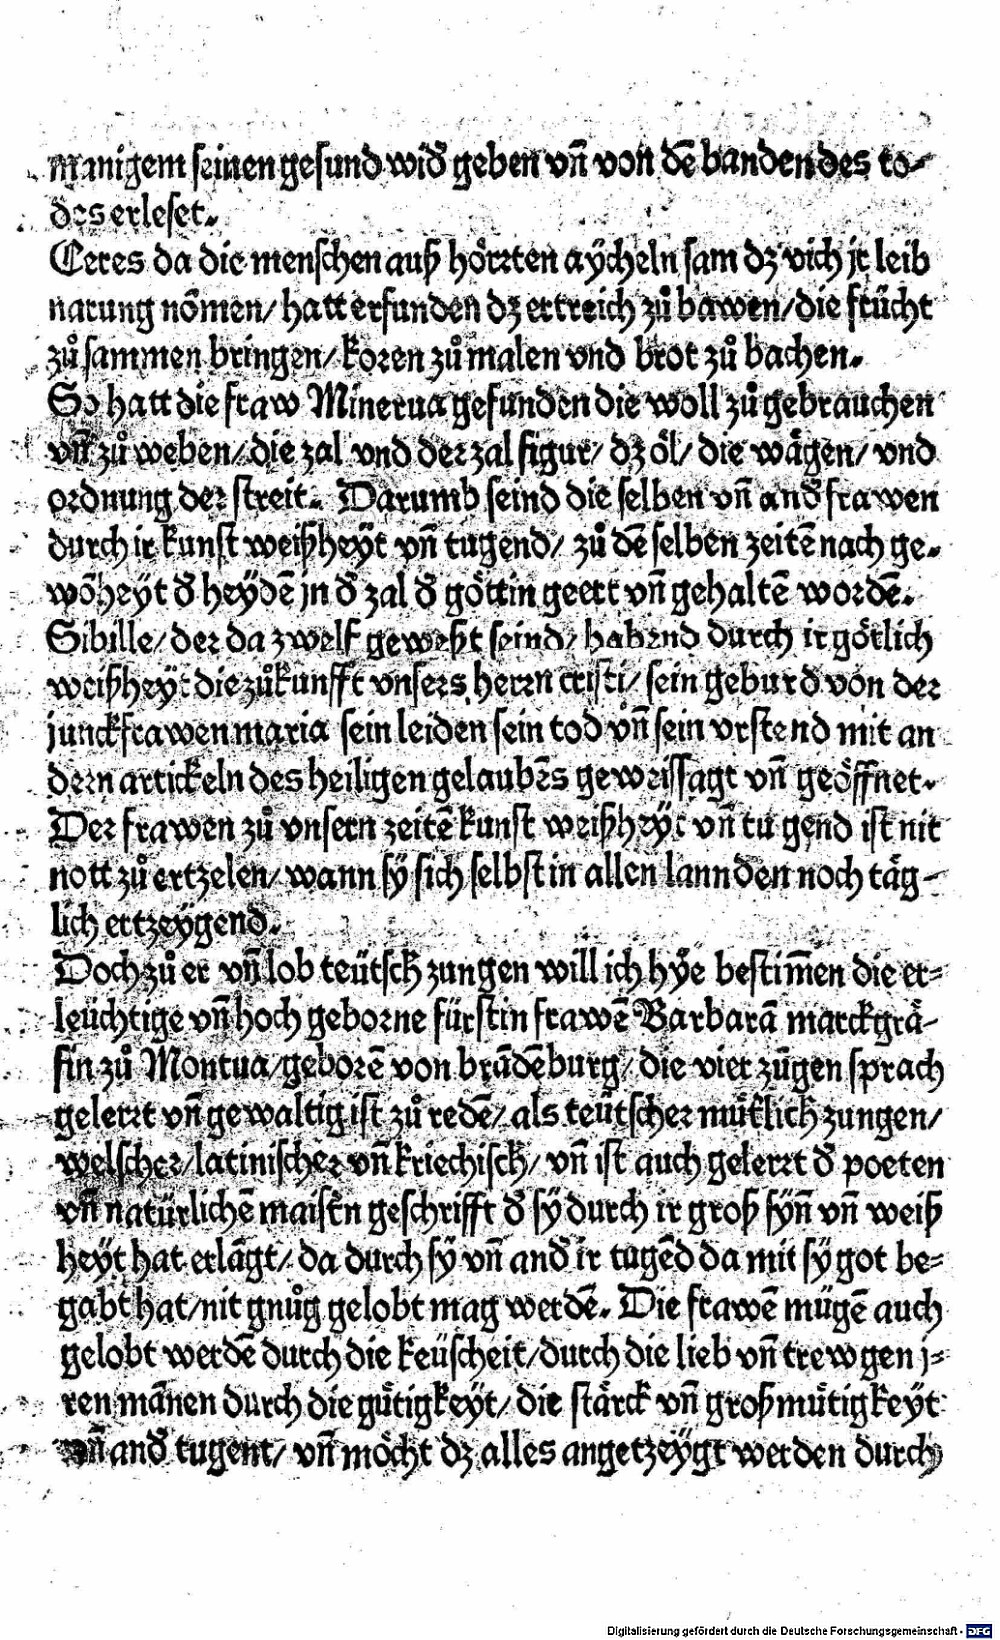 manigem seinen gesund wid̄ geben vn̄ von dē banden des to-
des erleset.
Ceres da die menschen auß hörten aÿcheln sam dz vich jr leib
narung nōmen/ hatt erfunden dz ertreich zů bawen/ die frücht
zů sammen bringen/ koren zů malen vnd brot zů bachen.
So hatt die fraw Minerua gefunden die woll zů gebrauchen
vn̄ zů weben/ die zal vnd der zal figur/ dz öl/ die wägen/ vnd
ordnung der streit. Darumb seind die selben vn̄ and̄ frawen
durch ir kunst weißheÿt vn̄ tugend/ zů dē selben zeitē nach ge-
wōheÿt d̄ heÿdē jn d̄ zal d̄ göttin geert vn̄ gehaltē wordē.
Sibille/ der da zwelf geweßt seind/ habend durch ir götlich
weißheÿt die zůkunfft vnsers herrn cristi/ sein geburd von der
junckfrawen maria sein leiden sein tod vn̄ sein vrstend mit an
dern artickeln des heiligen gelaubēs geweissagt vn̄ geöffnet.
Der frawen zů vnsern zeitē kunst weißheÿt vn̄ tugend ist nit
nott zů ertzelen/ wann sÿ sich selbst in allen lannden noch täg-
lich ertzeÿgend.
Doch zů er vn̄ lob teütsch zungen will ich hÿe bestim̄en die er-
leüchtige vn̄ hoch geborne fürstin frawē Barbarā marckgrä-
fin zů Montua/ geborē von brādēburg/ die vier zūgen sprach
gelerrt vn̄ gewaltig ist zů redē/ als teütscher můtlich zungen/
welscher/ latinischer vn̄ kriechisch/ vn̄ ist auch gelerrt d̄ poeten
vn̄ natürlichē maistn geschrifft d̄ sÿ durch ir groß sÿn̄ vn̄ weiß
heÿt hat erlāgt/ da durch sÿ vn̄ and̄ ir tugēd da mit sÿ got be-
gabt hat/ nit gnůg gelobt mag werdē. Die frawē mügē auch
gelobt werdē durch die keüscheit/ durch die lieb vn̄ trew gen j-
ren mānen durch die gütigkeÿt/ die stärck vn̄ großmütigkeÿt
vn̄ and̄ tugent/ vn̄ möcht dz alles angetzeÿgt werden durch
Digitalisierung gefördert durch die Deutsche Forschungsgemeinschaft - DFG